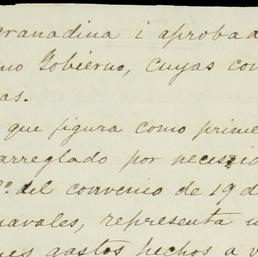 Granadina i aprobad
mo Gobierno, cuyas con
as.
que figura como prime
arreglado por necesid
2º. del convenio de 19 d
navales, representa u
nes gastos hechos a v